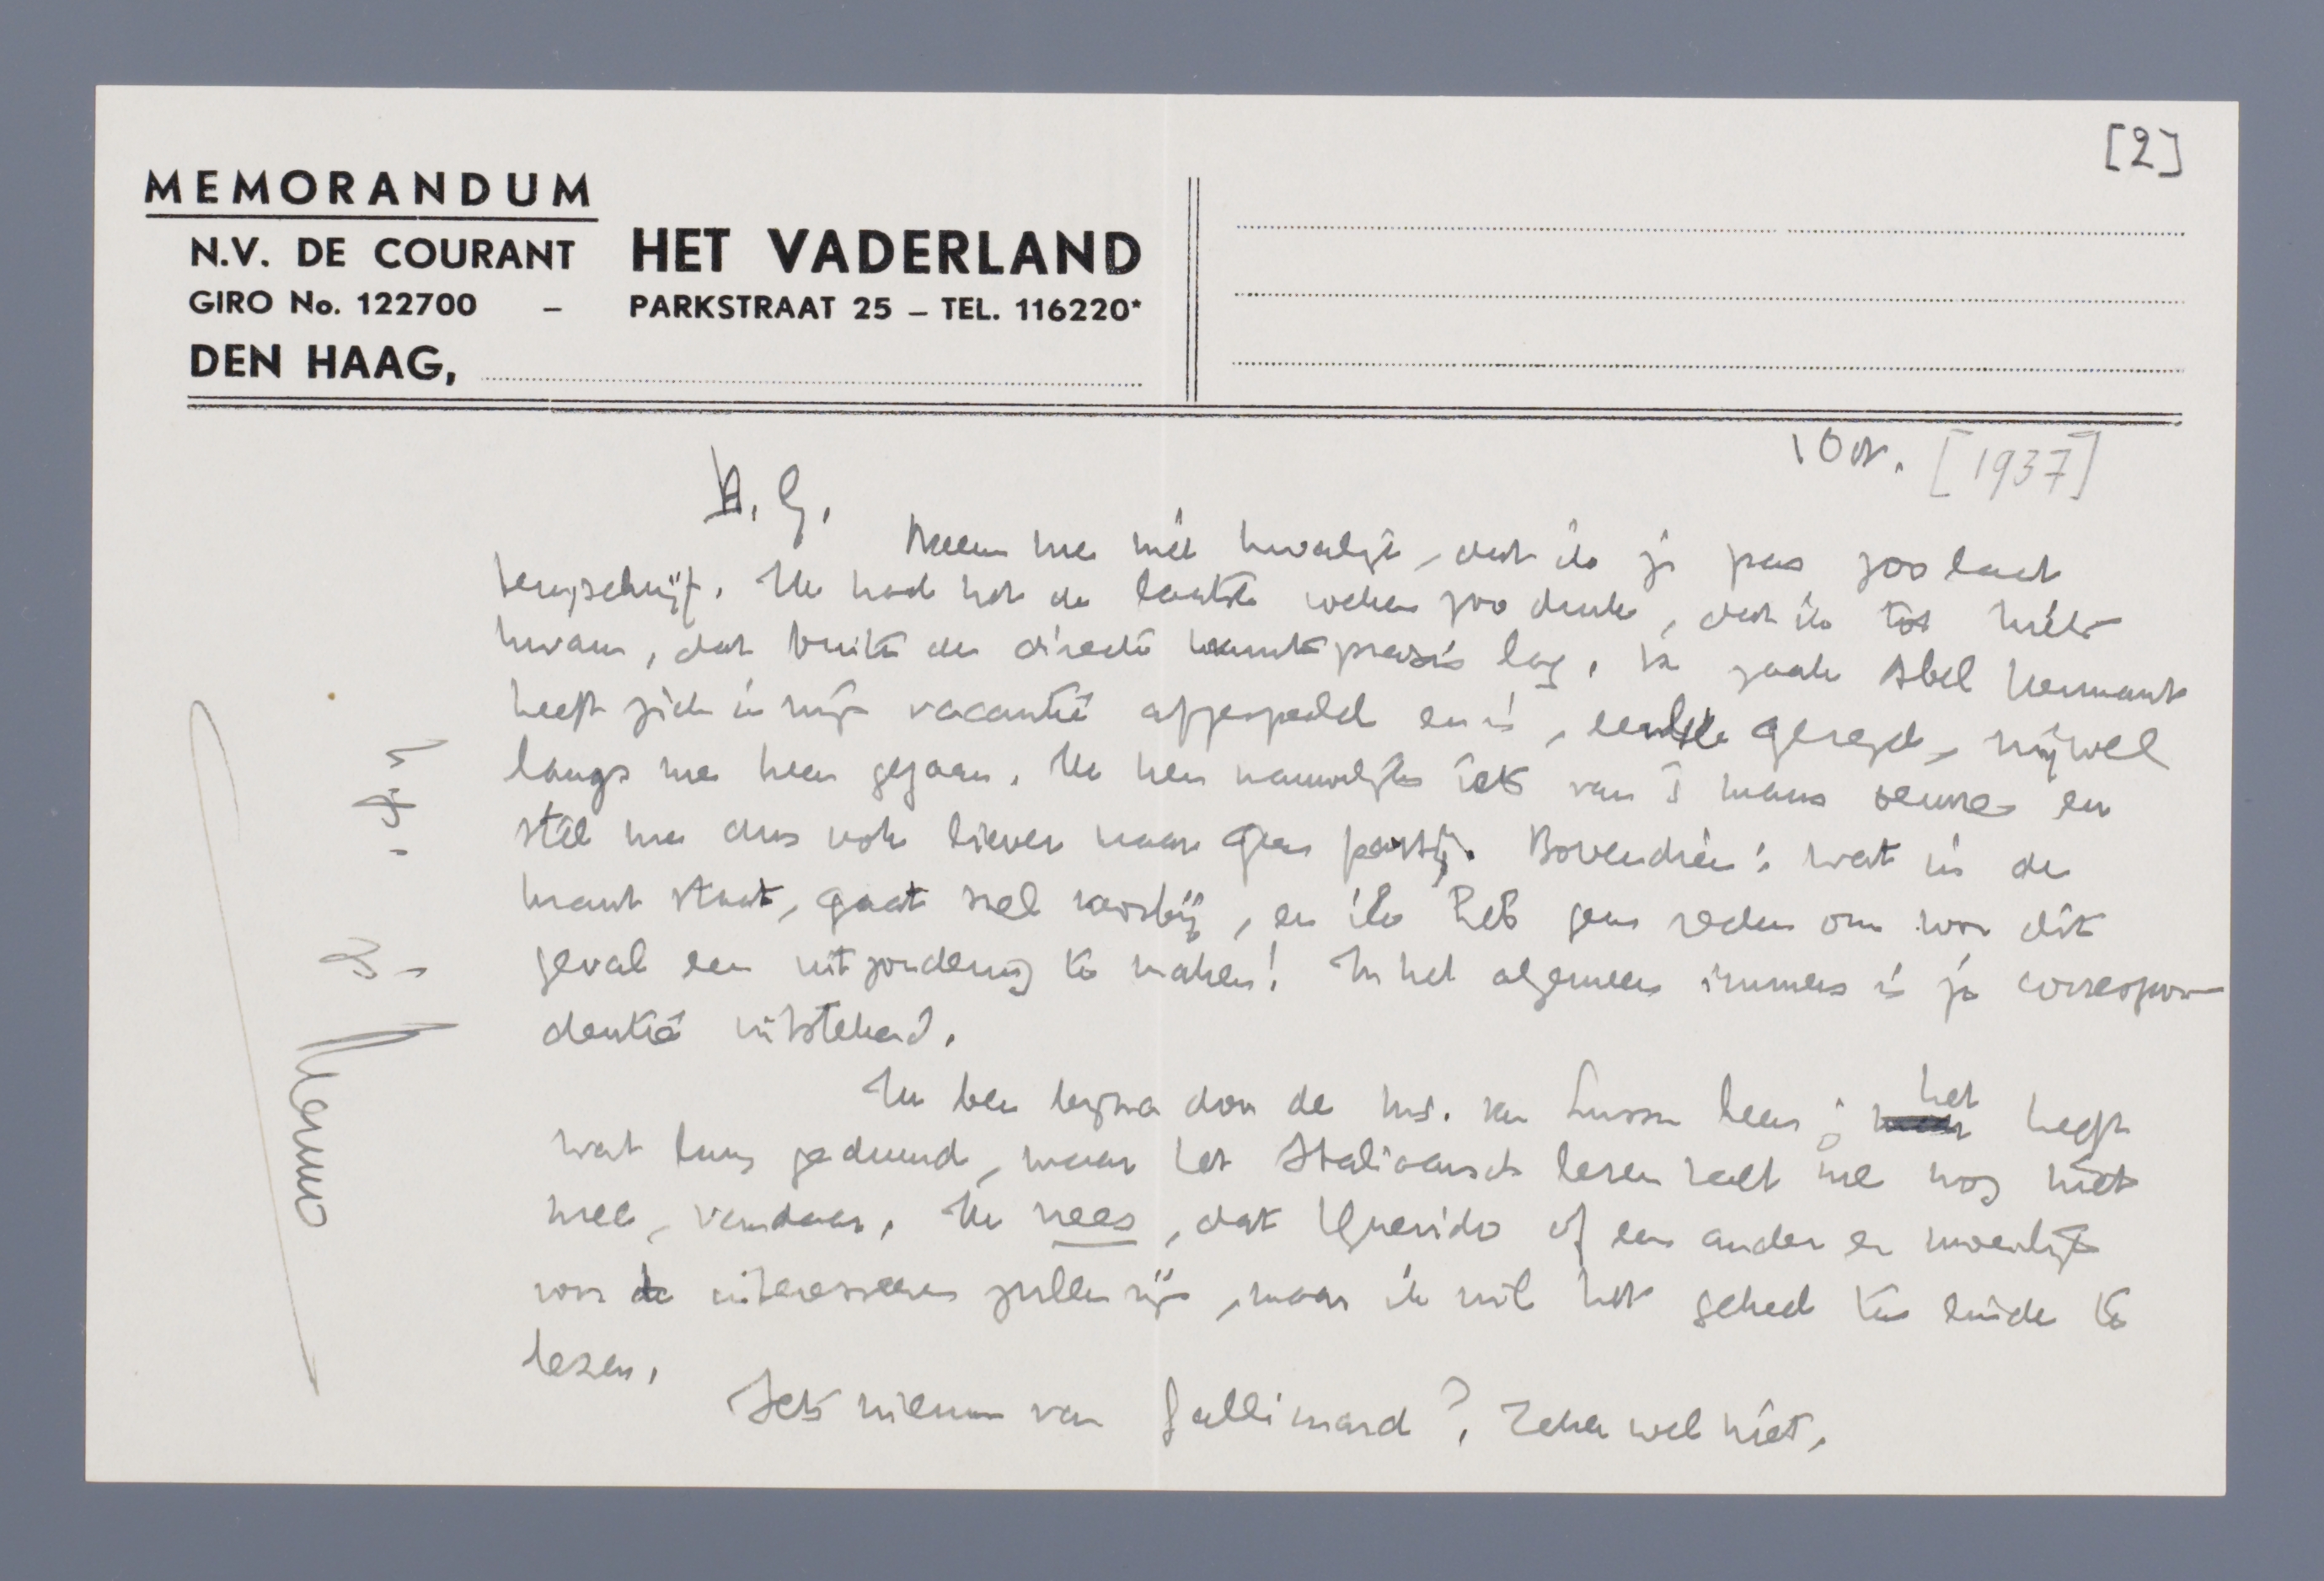 [2]
MEMORANDUM
N.V. DE COURANT HET VADERLAND
GIRO No. 122700 – PARKSTRAAT 25 – TEL. 116220*
DEN HAAG,
1 Oct. [1937]
B. G.
Neem me niet kwalijk, dat ik je pas zoo laat
terugschrijf. Ik had het de laatste weken zoo druk, dat ik tot niets
kwam, dat buiten de directe krantpraxis lag. De zaak Abel Hermant
heeft zich in mijn vacantie afgespeeld en is, eerlijk gezegd, vrijwel
langs me heen gegaan. Ik ken nauwelijks iets van 's mans oeuvre en
stel me dus ook liever maar geen partij. Bovendien: wat in de
krant staat, gaat snel voorbij, en ik heb geen reden om voor dit
geval een uitzondering te maken! In het algemeen immers is je correspon-
dentie uitstekend.
Ik ben bijna door de ms. van Lussu heen; het heeft
wat lang geduurd, maar het Italiaansch lezen valt me nog niet
mee, vandaar. Ik vrees, dat Querido of een ander er moeilijk
voor te interesseeren zullen zijn, maar ik wil het geheel ten einde toe
lezen.
Iets nieuws van Gallimard? Zeker wel niet.
Menno